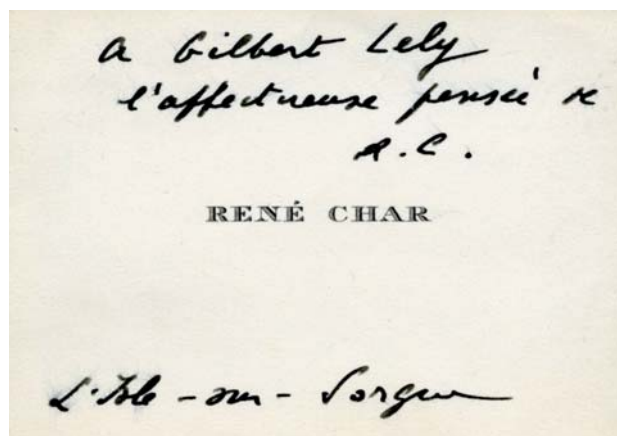 A Gilbert Lely
l'affectueuse pensée de
R.C.
RENÉ CHAR
L'Isle-sur-Sorgue